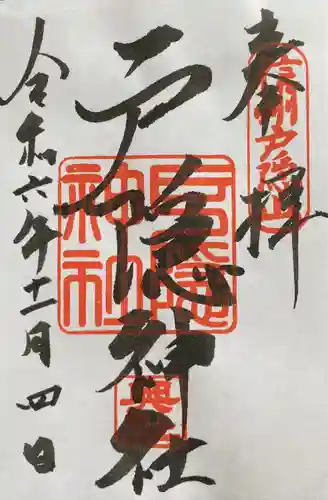 奉拝
信州戸隠山
戸隠神社
戸隠
神社
令和六年十一月四日